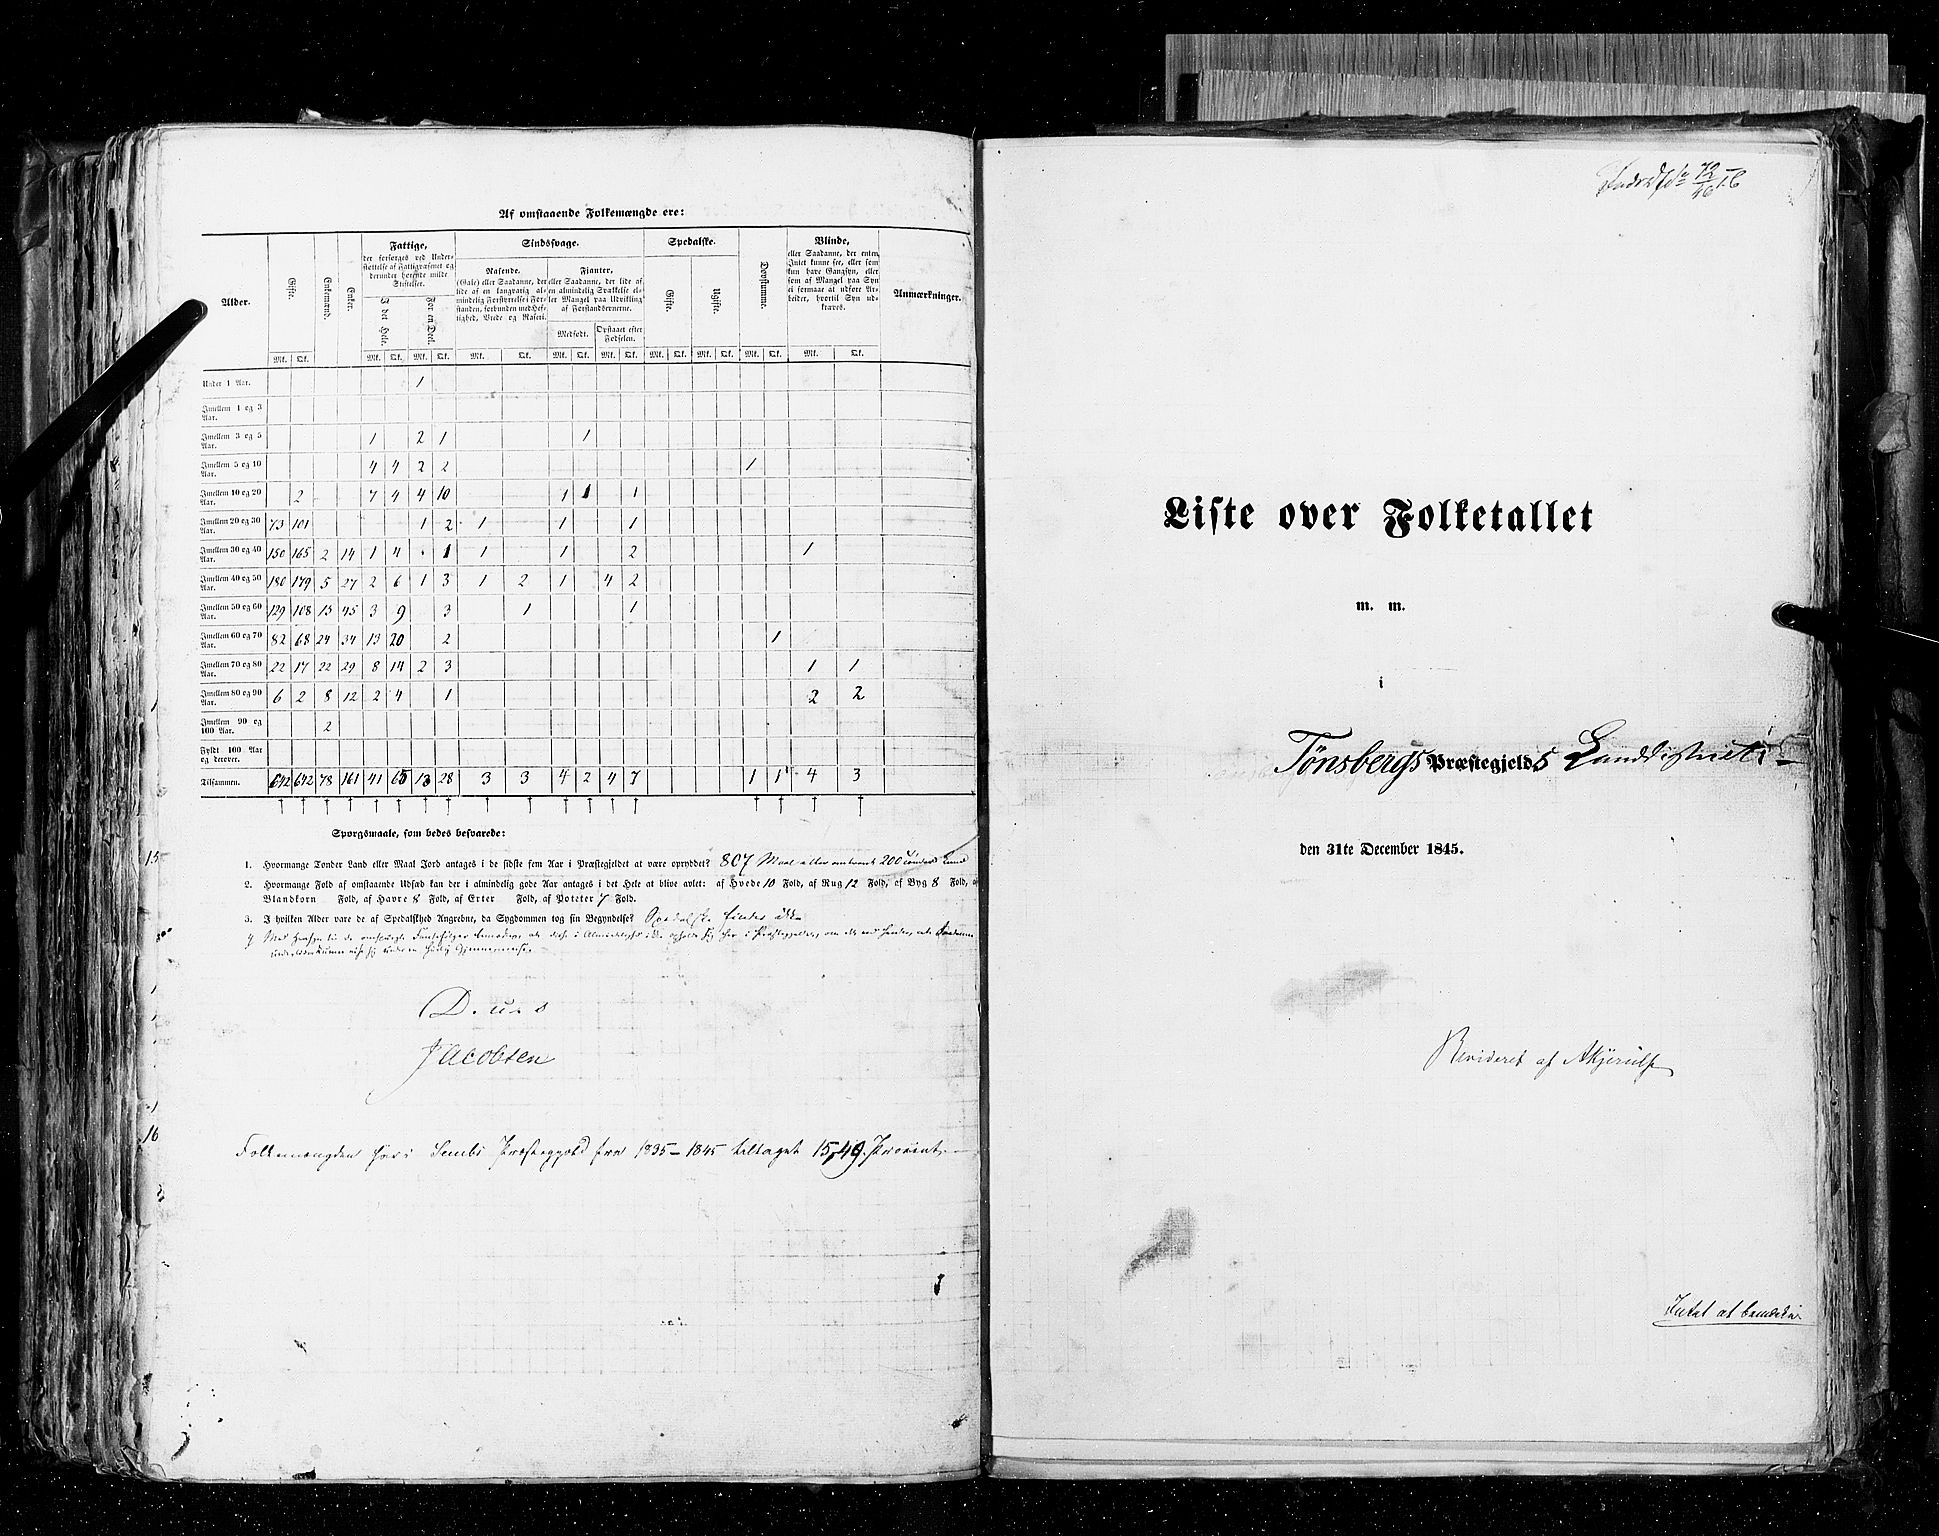 Af omstaaende Folkemængde ere:
Alder. Gifte. Enkemænd. Enker. Fattige, Sindssvage. Spedalske. Døvstumme. Blinde, Anmærkninger.
der forsørges ved Understøttelse af Fattigvæsenet og derunder hørende milde Stiftelser.
I det Hele. For en Deel.
Rasende.
(Gale) eller Saadanne, der lide af en langvarig almindelig Forstyrrelse i Forstanden, forbunden med Heftighed, Vrede og Raseri.
Fjanter,
eller Saadanne, der lide af en almindelig Svækkelse eller Mangel paa Udvikling af Forstandsevnerne.
Medfødt. Opstaaet efter Fødselen.
Gifte. Ugifte.
eller Saadanne, der enten Intet kunne see, eller som kun have Gangsyn, eller som af Mangel paa Syn ei formaae at udføre Arbeider, hvortil Syn udkræves.
Mk. Qk. Mk. Qk. Mk. Qk. Mk. Qk. Mk. Qk. Mk. Qk. Mk. Qk. Mk. Qk. Mk. Qk. Mk. Qk.
Under 1 Aar. 1
Imellem 1 og 3 Aar.
Imellem 3 og 5 Aar. 1 2 1 1
Imellem 5 og 10 Aar. 4 4 2 2 1
Imellem 10 og 20 Aar. 2 7 4 4 10 1 1 1
Imellem 20 og 30 Aar. 73 101 1 2 1 1 1
Imellem 30 og 40 Aar. 150 165 2 14 1 4 1 1 1 2 1
Imellem 40 og 50 Aar. 180 179 5 27 2 6 1 3 1 2 1 4 2
Imellem 50 og 60 Aar. 129 108 15 45 3 9 3 1 1
Imellem 60 og 70 Aar. 82 68 24 34 13 20 2 1
Imellem 70 og 80 Aar. 22 17 22 29 8 14 2 3 1 1
Imellem 80 og 90 Aar. 6 2 8 12 2 4 1 2 2
Imellem 90 og 100 Aar. 2
Fyldt 100 Aar og derover.
Tilsammen. 642 642 78 161 41 65 13 28 3 3 4 2 4 7 1 1 4 3
Spørgsmaale, som bedes besvarede:
1. Hvormange Tønder Land eller Maal Jord antages i de sidste fem Aar i Præstegjeldet at være opryddet? 807 Maal eller omtrent 200 Tønder Land
2. Hvormange Fold af omstaaende Udsæd kan der i almindelig gode Aar antages i det Hele at blive avlet: af Hvede 10 Fold, af Rug 12 Fold, af Byg 8 Fold, af
Blandkorn Fold, af Havre 8 Fold, af Erter Fold, af Poteter 7 Fold.
3. I hvilken Alder vare de af Spedalskhed Angrebne, da Sygdommen tog sin Begyndelse? Spedalske findes ikke
Jacobsen
Folkemængden har i Sembs Præstegjeld fra 1835-1845 tiltaget 15,49 Procent.
15
16
Liste over Folketallet
m. m.
i
Tønsbergs Præstegjelds Landdistrict
den 31te December 1845.
Revideret af AKjerulf
Intet at bemærke